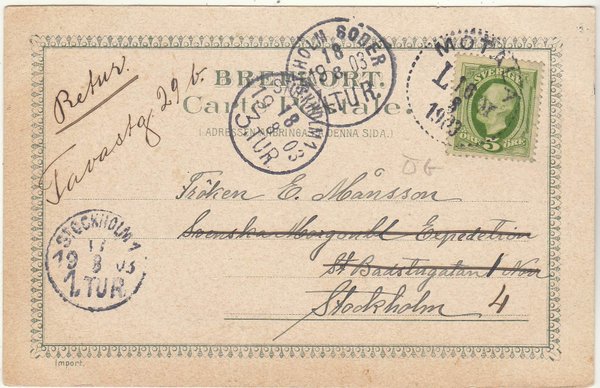 Retur.
Tavastg 29 b.
BREFKORT.
Carte Postale.
(ADRESSEN ANBRINGAS Å DENNA SIDA.)
STOCKHOLM SÖDER
18
8 03
TUR.
STOCKHOLM 1
19 8
8 03
3. TUR
MOTALA
L
16
8
1903
SVERIGE
5
ÖRE
ÖG
Fröken E. Månsson
Svenska Morgonbl Expedition
St Badstugatan 1 Nov
Stockholm 4
STOCKHOLM 1
17
19 8 03
1. TUR.
Import.